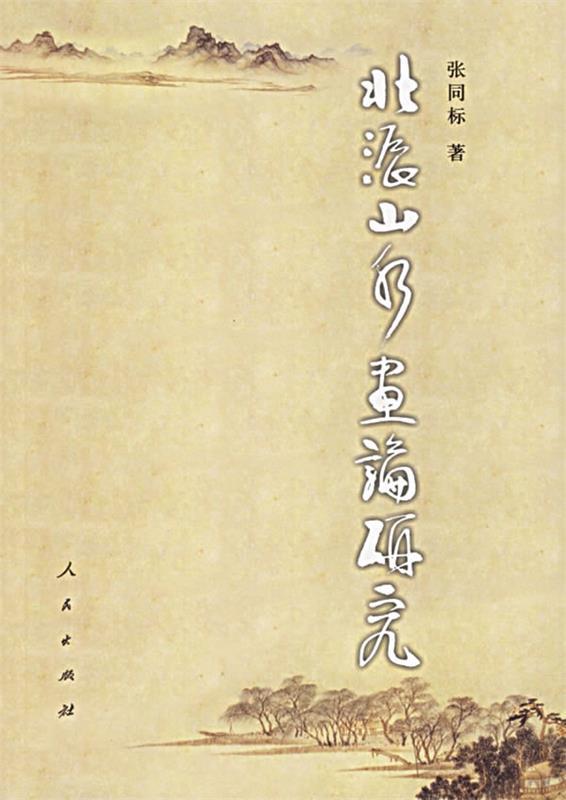 张同标 著
北派山水畫論研究
人民出版社